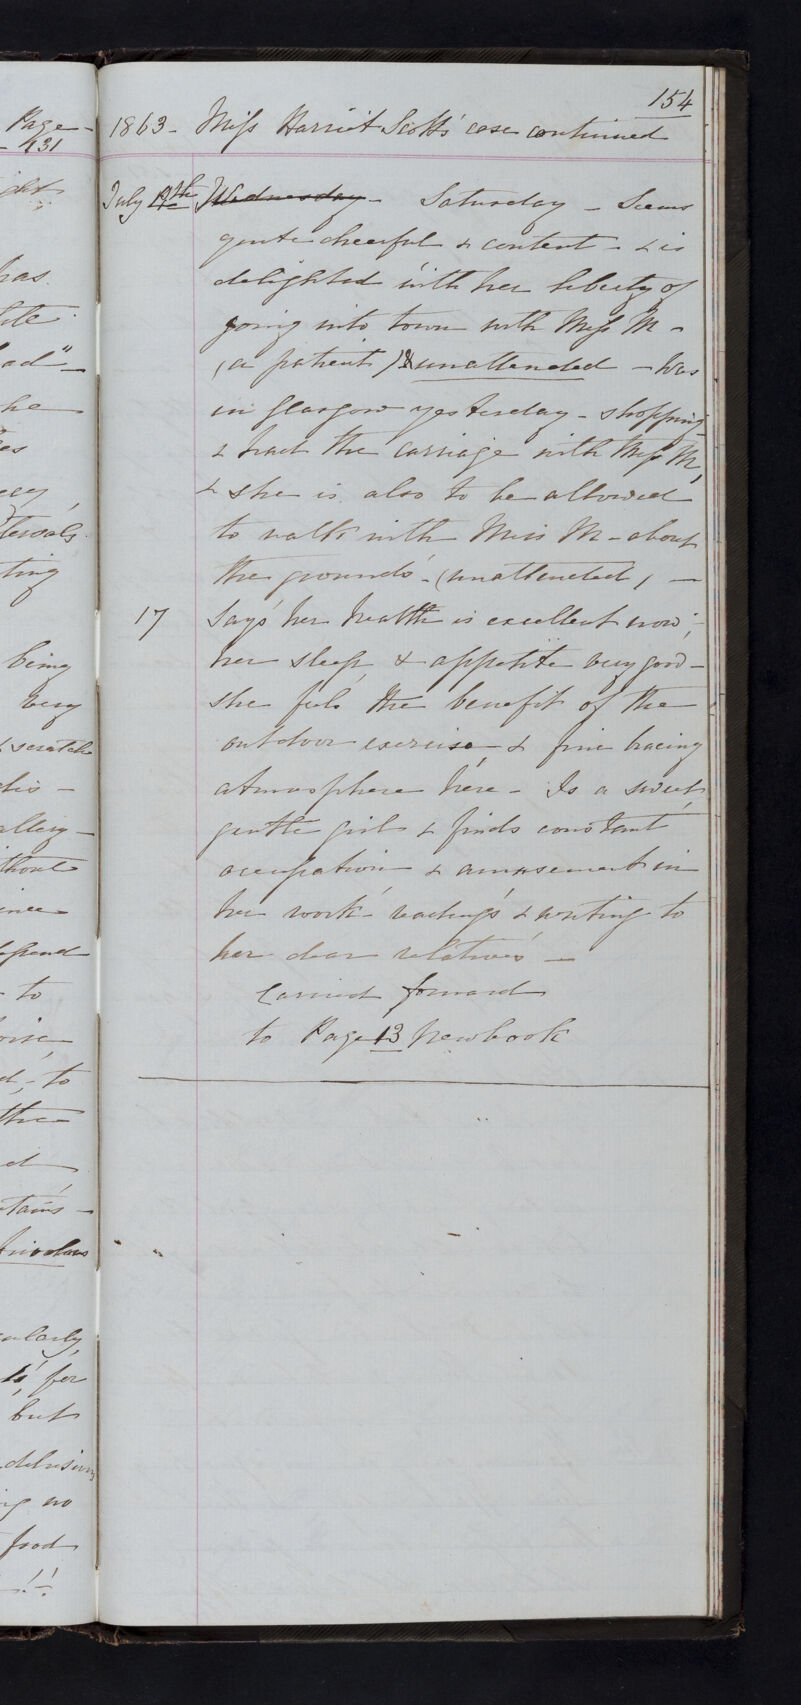 Page -
431
154
1863 - Miss Harriet Scott's case continued
July 19th Wednesday - Saturday - Seems
quite cheerful & content - & is
delighted with her liberty of
going into town with Miss M -
(a patient) & unattended - was
in Glasgow yesterday - shopping -
& had the carriage with Miss M,
& she is also to be allowed
to walk with Miss M - about
the grounds - (unattended) -
17 Says her health is excellent now;
her sleep & appetite very good -
she feels the benefit of the
outdoor exercise & fine bracing
atmosphere here - Is a sweet
gentle girl & finds constant
occupation & amusement in
her work - readings & writing to
her dear relatives -
Carried forward
to Page 13 New book
has
ad" -
he
ting
being
very
& scratch
to
but
no
food